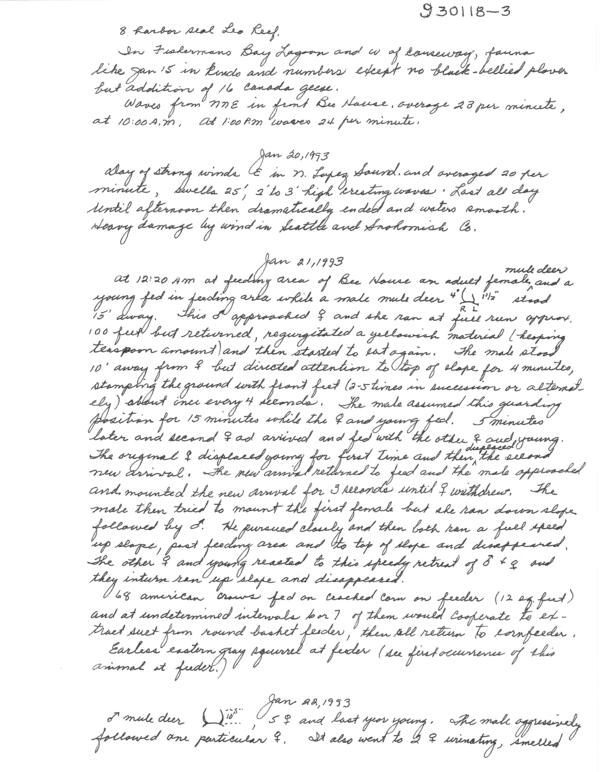 930118-3
8 harbor seal Leo Reef.
In Fishermans Bay Lagoon and W of causeway, fauna
like Jan 15 in kinds and numbers except no black-bellied plover
but addition of 16 Canada geese.
Waves from NNE in front Bee House. average 23 per minute,
at 10:00 A.M. At 1:00 PM waves 24 per minute.
Jan 20, 1993
Day of strong winds E in N. Lopez Sound. and averaged 20 per
minute, swells 25', 2' to 3' high cresting waves. Last all day
until afternoon then dramatically ended and waters smooth.
Heavy damage by wind in Seattle and Snohomish Co.
Jan 21, 1993
At 12:20 AM at feeding area of Bee House an adult female mule deer and a
young fed in feeding area while a male mule deer 4" R L stood
15' away. This ♂ approached ♀ and she ran at full run approx.
100 feet but returned, regurgitated a yellowish material (heaping
teaspoon amount) and then started to eat again. The male stood
10' away from ♀ but directed attention to top of slope for 4 minutes,
stamping the ground with front feet (2-5 times in succession or alternat-
ely) about once every 4 seconds. The male assumed this guarding
position for 15 minutes while the ♀ and young fed. 5 minutes
later and second ♀ ad arrived and fed with the other ♀ and young.
The original ♀ displaced young for first time and then displaced the second
new arrival. The new arrival returned to feed and the male approached
and mounted the new arrival for 3 seconds until ♀ withdrew. The
male then tried to mount the first female but she ran down slope
followed by ♂. He pursued closely and then both ran a full speed
up slope, past feeding area and to top of slope and disappeared.
The other ♀ and young reacted to this speedy retreat of ♂ + ♀ and
they inturn ran up slope and disappeared.
68 american crows fed on cracked corn on feeder (12 sq. feet)
and at undetermined intervals 6 or 7 of them would cooperate to ex-
tract suet from round basket feeder, then all return to corn feeder.
Earless eastern gray squirrel at feeder (see first occurrence of this
animal at feeder.)
Jan 22, 1993
♂ mule deer 10", 5 ♀ and last year young. The male aggressively
followed one particular ♀. It also went to 2 ♀ urinating, smelled